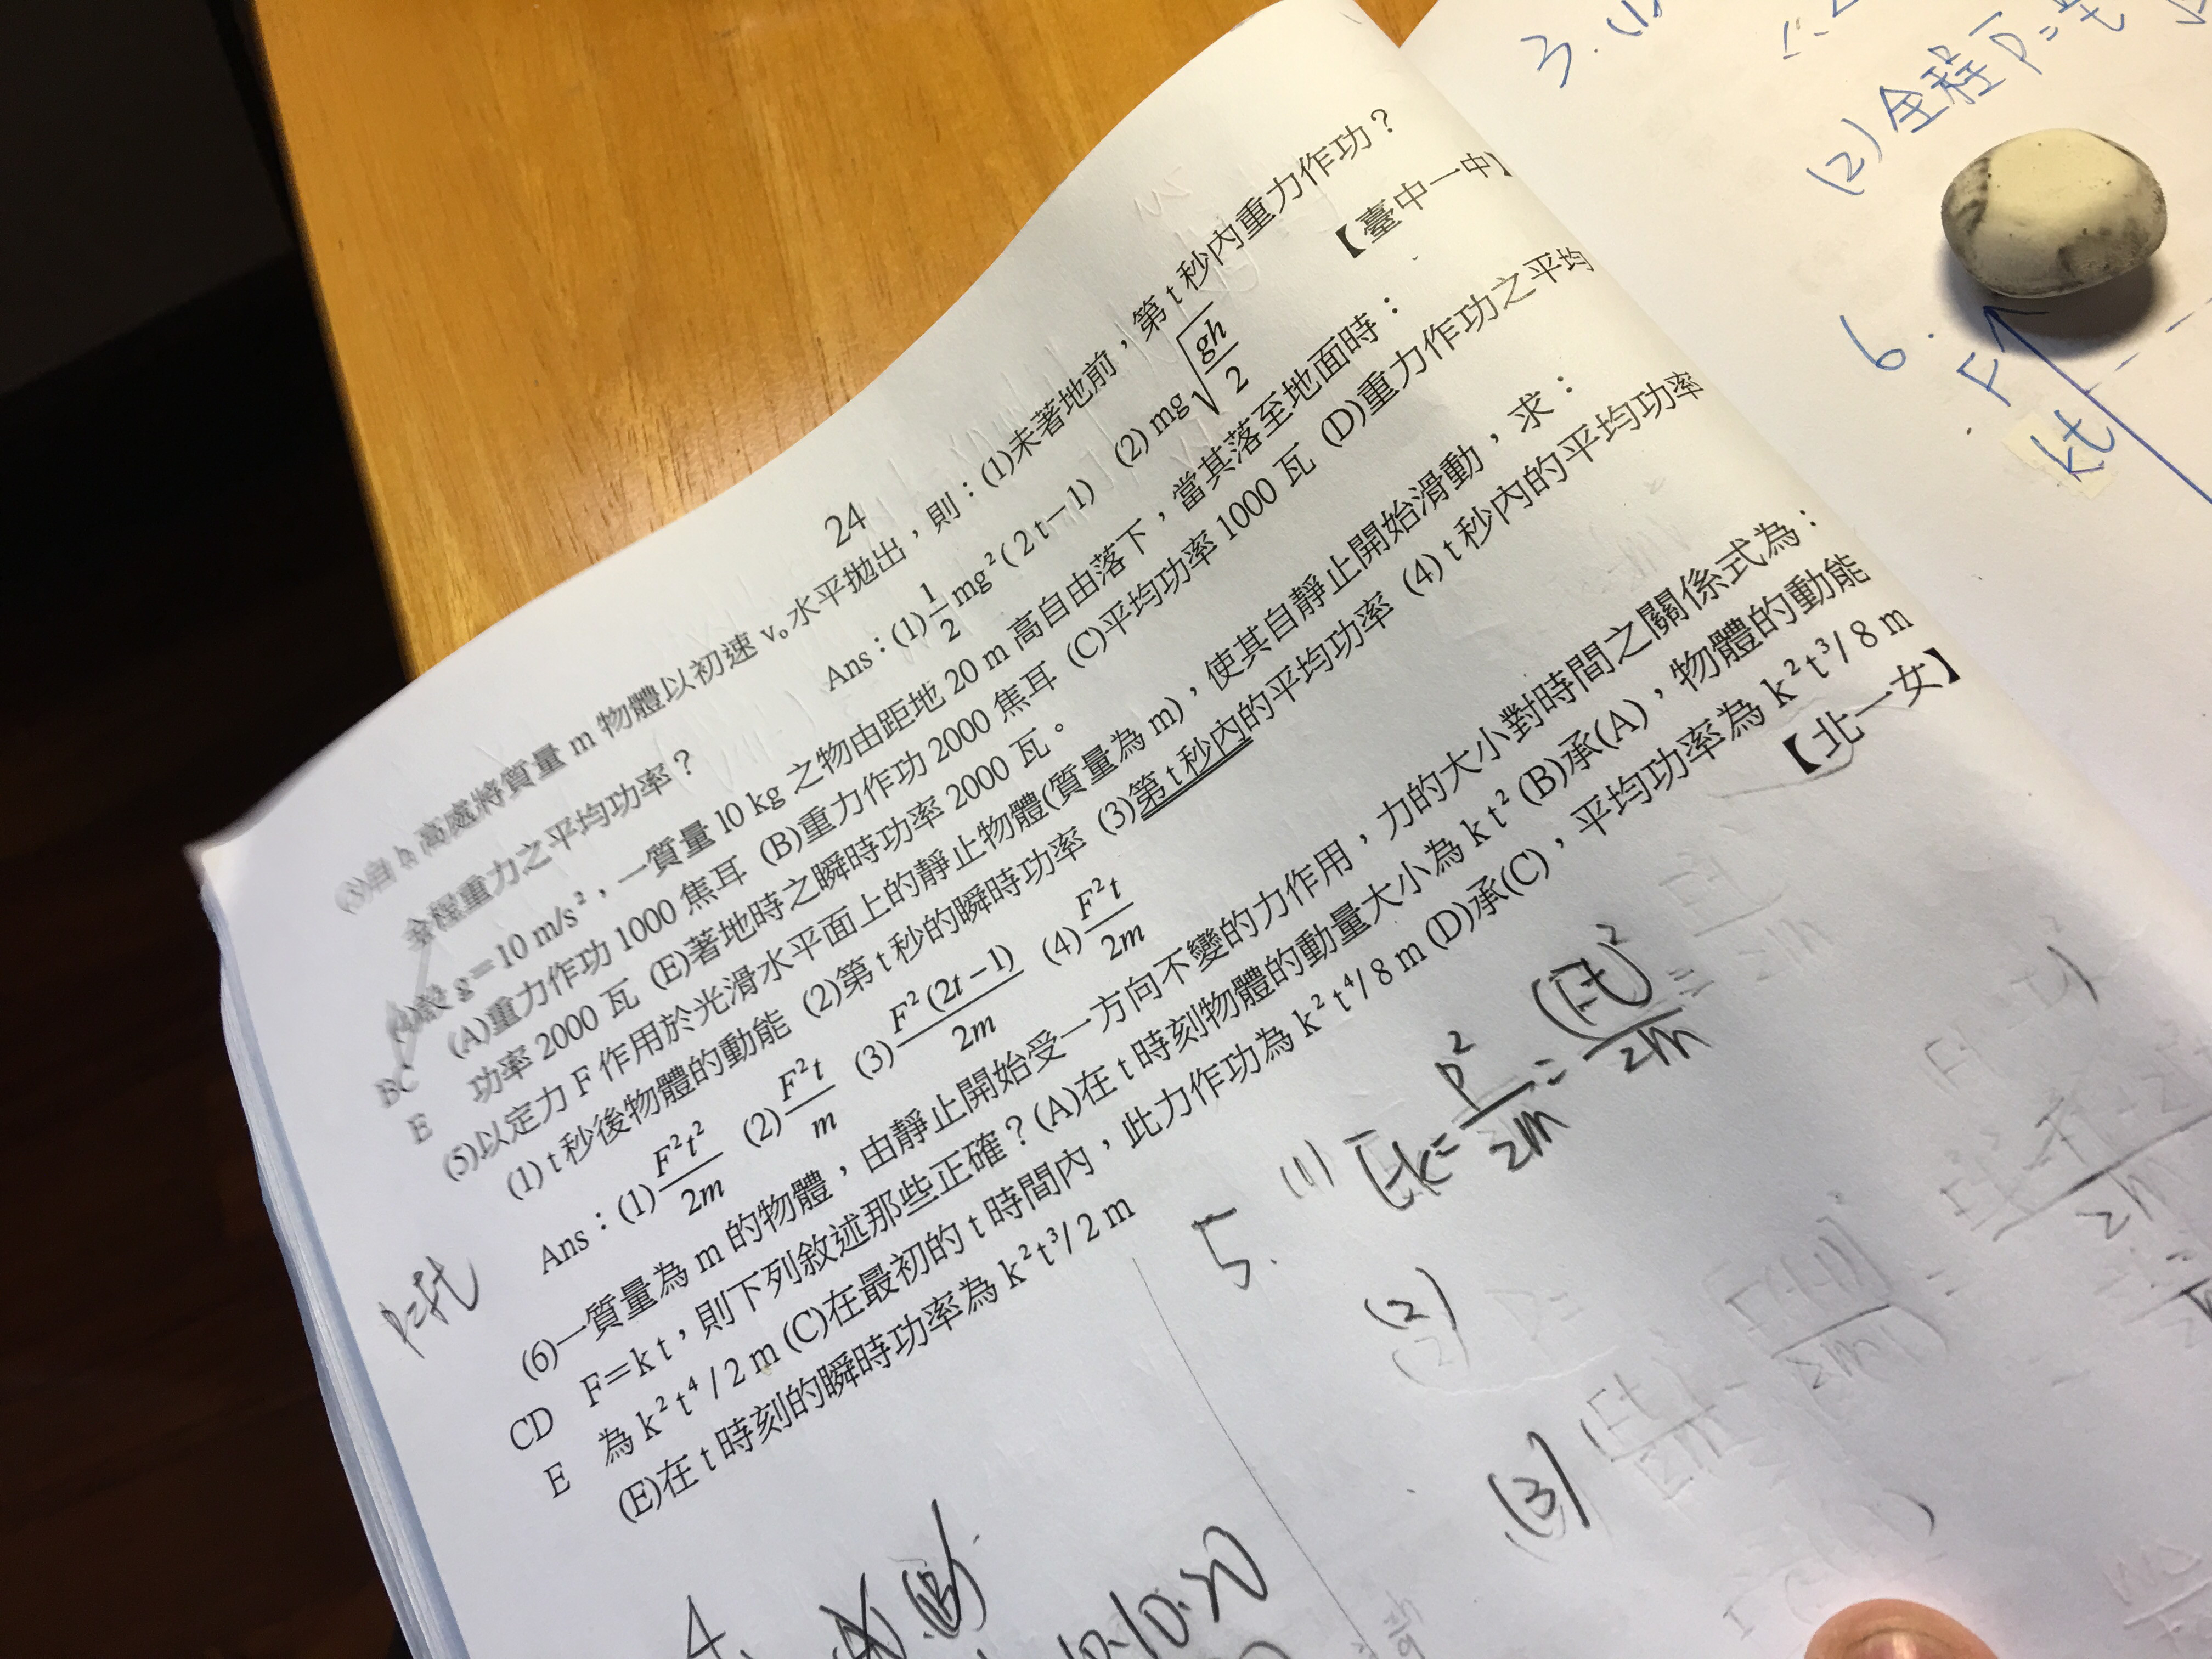 24
(3)自 h 高處將質量 m 物體以初速 v₀水平拋出,則:(1)未著地前,第 t 秒內重力作功?
全程重力之平均功率?
【臺中一中】
Ans:(1)$\frac{1}{2}$mg²(2t−1) (2) mg$\sqrt{\frac{gh}{2}}$
(4)設 g=10 m/s²,一質量 10 kg 之物由距地 20 m 高自由落下,當其落至地面時:
(A)重力作功 1000 焦耳 (B)重力作功 2000 焦耳 (C)平均功率 1000 瓦 (D)重力作功之平均
BC
功率 2000 瓦 (E)著地時之瞬時功率 2000 瓦。
E
(5)以定力 F 作用於光滑水平面上的靜止物體(質量為 m),使其自靜止開始滑動,求:
(1) t 秒後物體的動能 (2)第 t 秒的瞬時功率 (3)第 t 秒內的平均功率 (4) t 秒內的平均功率
Ans:(1)$\frac{F^2t^2}{2m}$ (2)$\frac{F^2t}{m}$ (3)$\frac{F^2(2t-1)}{2m}$ (4)$\frac{F^2t}{2m}$
(6)一質量為 m 的物體,由靜止開始受一方向不變的力作用,力的大小對時間之關係式為:
F=k t,則下列敘述那些正確?(A)在 t 時刻物體的動量大小為 k t² (B)承(A),物體的動能
CD
為 k² t⁴ / 2 m (C)在最初的 t 時間內,此力作功為 k² t⁴/ 8 m (D)承(C),平均功率為 k² t³/ 8 m
E
(E)在 t 時刻的瞬時功率為 k² t³/ 2 m
【北一女】
P=Ft
5. (1) Ek=$\frac{P^2}{2m}$=$\frac{(Ft)^2}{2m}$
(2)
(3)
4.
10·20
3.(1)
(2)全程
6.
F
kt